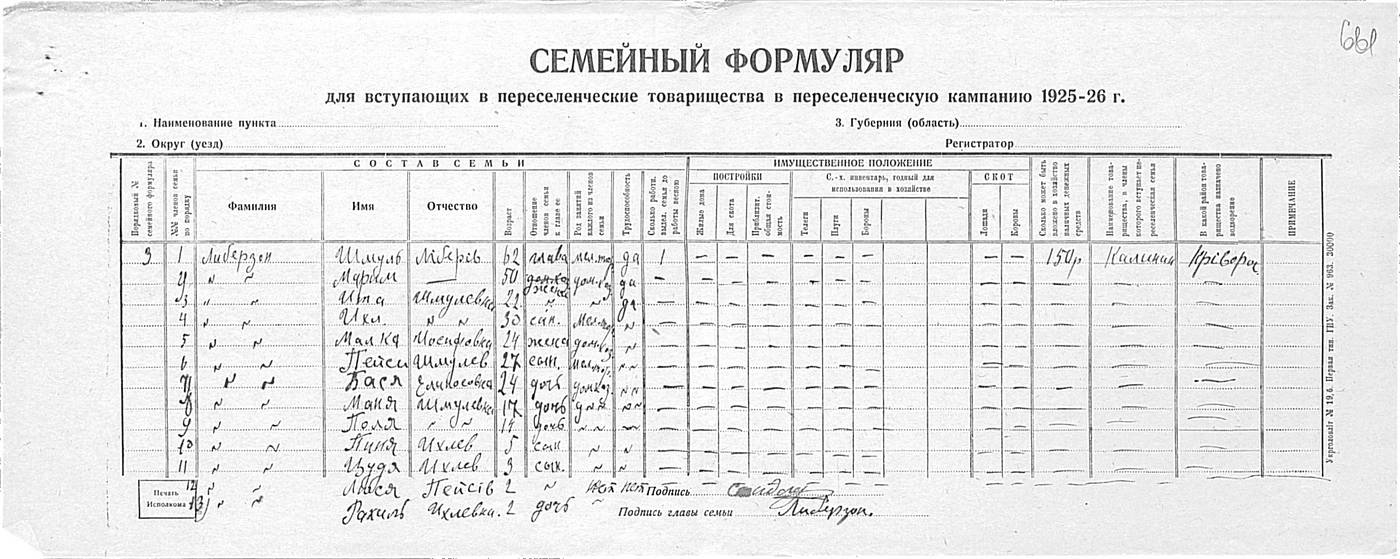 661
СЕМЕЙНЫЙ ФОРМУЛЯР
для вступающих в переселенческие товарищества в переселенческую кампанию 1925-26 г.
1. Наименование пункта
3. Губерния (область)
2. Округ (уезд)
Регистратор
СОСТАВ СЕМЬИ
ИМУЩЕСТВЕННОЕ ПОЛОЖЕНИЕ
Порядковый № семейного формуляра
№№ членов семьи по порядку
Фамилия
Имя
Отчество
Возраст
Отношение членов семьи к главе ее
Род занятий каждого из членов семьи
Трудоспособность
Сколько работн. выдел. семья до работы весною
ПОСТРОЙКИ
Жилые дома
Для скота
Приблизит. общая стоимость
С.-х. инвентарь, годный для использования в хозяйстве
Телеги
Плуги
Бороны
СКОТ
Лошади
Коровы
Сколько может быть вложено в хозяйство наличных денежных средств
Наименование товарищества, в члены которого вступает переселенческая семья
В какой район товарищества назначено водворение
ПРИМЕЧАНИЕ
3 1 Либерзон Шмуль Ліберів 62 глава да 1 — — — — — — — — 150р Калинин
" " Марим — 50 жена домхоз да
3 " " Ита Шмулевна 22 " " да
4 " " Ихл " " 30 сын.
5 " " Малка Иосифовна 24 жена домхоз "
6 " " Пейси Шмулев 27 сын.
" " Бася 24 дочь домхоз " "
8 " " Маня Шмулевна 17 дочь " "
9 " " Поля " " 14 дочь " "
10 " " Пиня Ихлев 5 сын " "
11 " " Иудя Ихлев 3 сын. " "
12 " " Люся Пейсів 2 " нет нет
13 " " Рахиль Ихлевна. 2 дочь "
Печать Исполкома
Подпись
Подпись главы семьи Либерзон.
Укрглавліт № 19,6. Первая тип. ГПУ. Зак. № 963. 30000